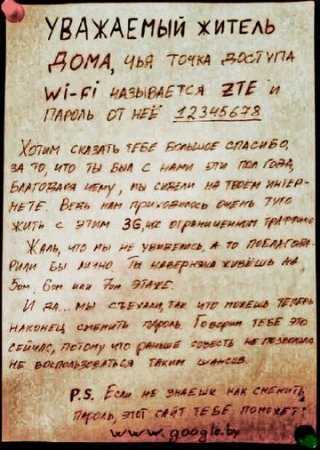 УВАЖАЕМЫЙ ЖИТЕЛЬ
ДОМА, ЧЬЯ ТОЧКА ДОСТУПА
Wi-Fi НАЗЫВАЕТСЯ ZTE И
ПАРОЛЬ ОТ НЕЁ 12345678
ХОТИМ СКАЗАТЬ ТЕБЕ БОЛЬШОЕ СПАСИБО,
ЗА ТО, ЧТО ТЫ БЫЛ С НАМИ ЭТИ ПОЛ ГОДА,
БЛАГОДАРЯ ЧЕМУ, МЫ СИДЕЛИ НА ТВОЕМ ИНТЕР-
НЕТЕ. ВЕДЬ НАМ ПРИХОДИЛОСЬ ОЧЕНЬ ТУГО
ЖИТЬ С ЭТИМ 3G, ОГРАНИЧЕННОМ ТРАФИКОМ
ЖАЛЬ, ЧТО МЫ НЕ УВИДЕЛИСЬ, А ТО ПОБЛАГОДА-
РИЛИ БЫ ЛИЧНО. ТЫ НАВЕРНЯКА ЖИВЁШЬ НА
5ом, 6ом ИЛИ 7ом ЭТАЖЕ.
И ДА... МЫ СЪЕХАЛИ, ТАК ЧТО МОЖЕШЬ ТЕПЕРЬ
НАКОНЕЦ СМЕНИТЬ ПАРОЛЬ. ГОВОРИМ ТЕБЕ ЭТО
СЕЙЧАС, ПОТОМУ ЧТО РАНЬШЕ СОВЕСТЬ НЕ ПОЗВОЛИЛА
НЕ ВОСПОЛЬЗОВАТЬСЯ ТАКИМ ШАНСОМ.
P.S. ЕСЛИ НЕ ЗНАЕШЬ КАК СМЕНИТЬ
ПАРОЛЬ, ЭТОТ САЙТ ТЕБЕ ПОМОЖЕТ:
www.google.by